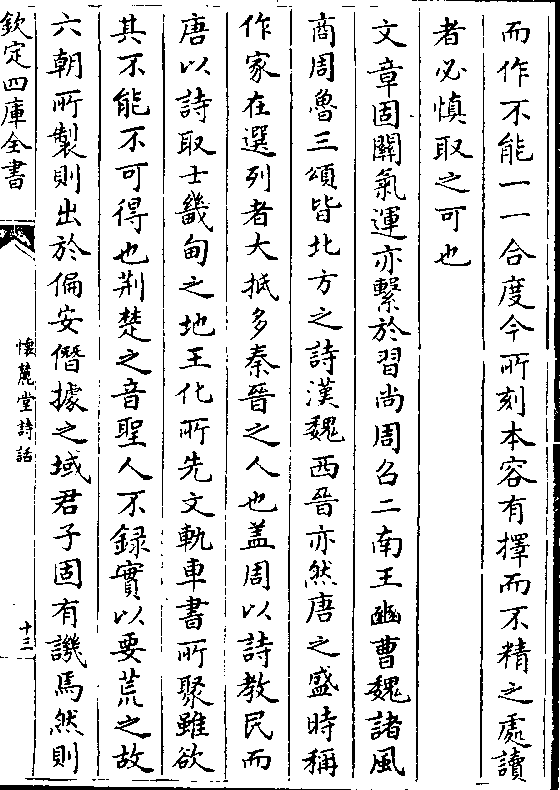 而作不能一一合度今所刻本容有擇而不精之處讀
者必慎取之可也
文章固關氣運亦繫於習尚周召二南王豳曹魏諸風
商周魯三頌皆北方之詩漢魏西晉亦然唐之盛時稱
作家在選列者大抵多秦晉之人也盖周以詩教民而
唐以詩取士畿甸之地王化所先文軌車書所聚雖欲
其不能不可得也荆楚之音聖人不録實以要荒之故
六朝所製則出於偏安僭據之域君子固有譏焉然則
欽定四庫全書
懷麓堂詩話
十三